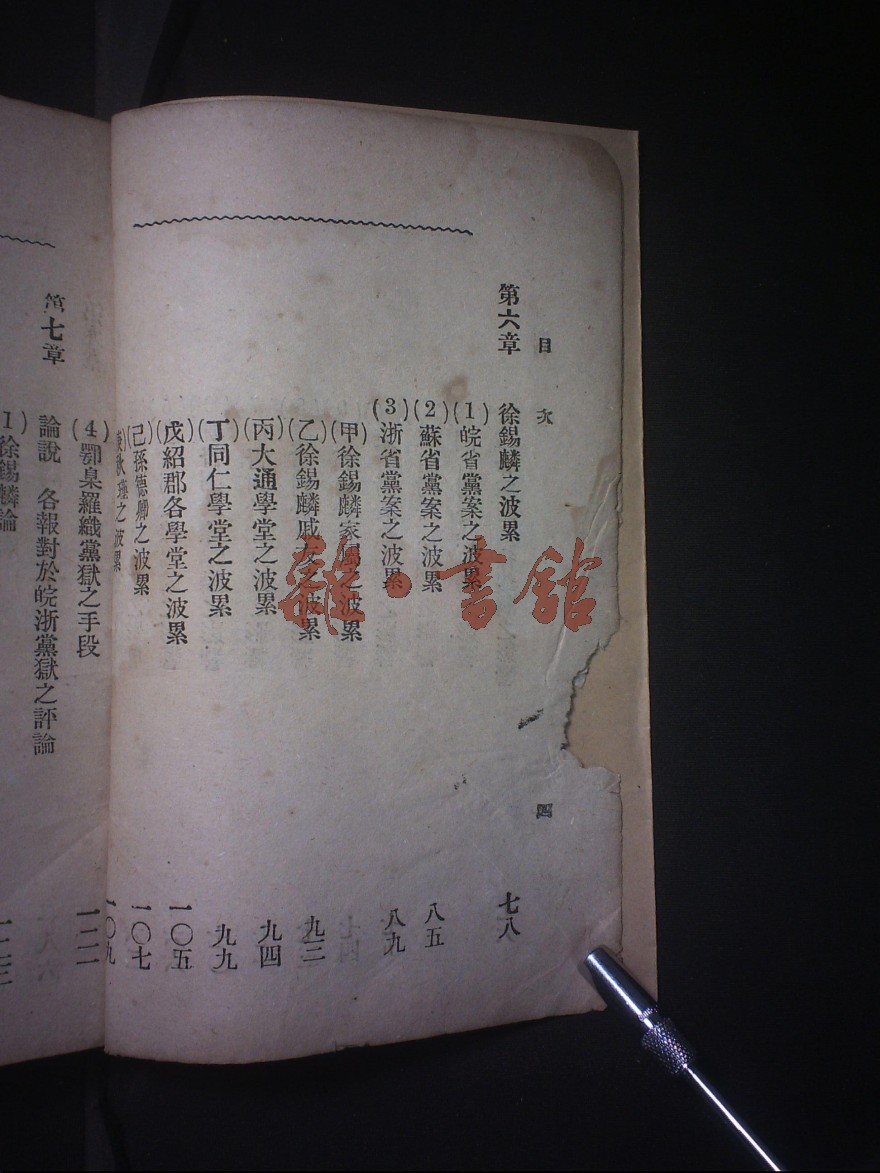 目次 四
第六章 徐錫麟之波累 七八
(1)皖省黨案之波累
(2)蘇省黨案之波累 八五
(3)浙省黨案之波累 八九
(甲)徐錫麟家屬之波累
(乙)徐錫麟戚友之波累 九三
(丙)大通學堂之波累 九四
(丁)同仁學堂之波累 九九
(戊)紹郡各學堂之波累 一〇五
(己)孫德卿之波累 一〇七
(庚)秋瑾之波累 一〇九
(4)鄂臬羅織黨獄之手段
第七章 論說 各報對於皖浙黨獄之評論
1)徐錫麟論
雜·書館